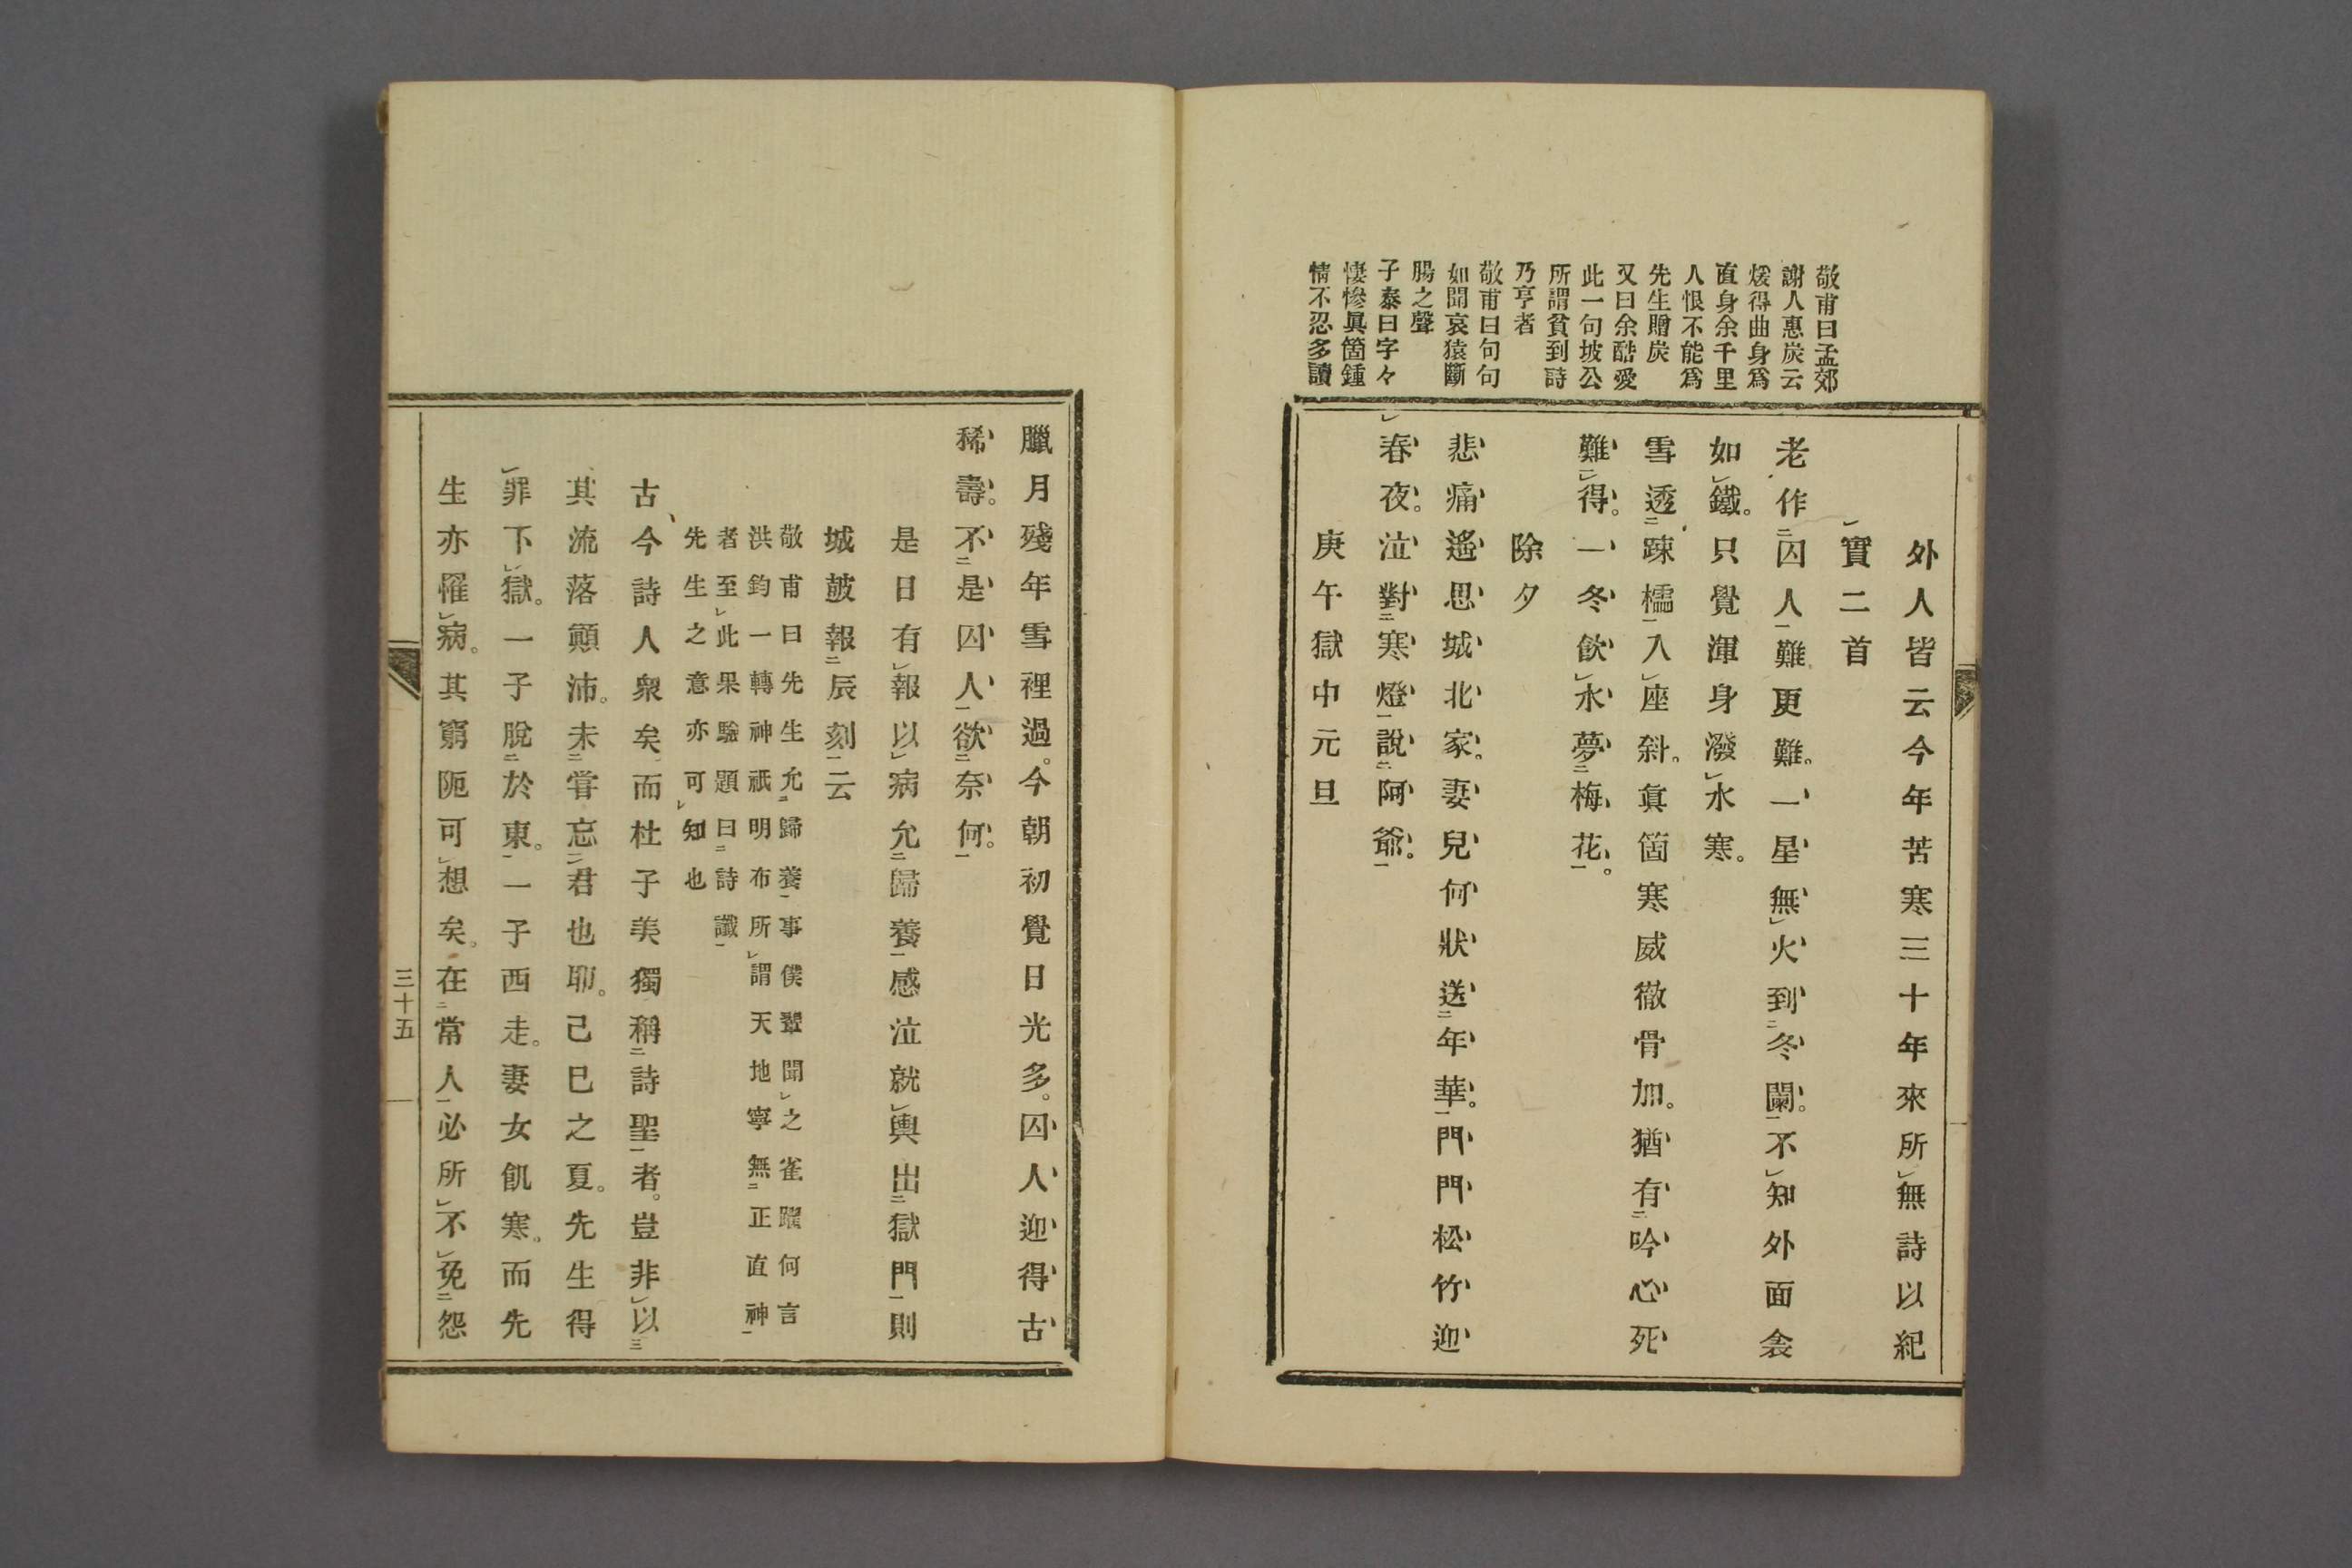 敬甫曰孟郊
謝人惠炭云
煖得曲身爲
直身余千里
人恨不能爲
先生贈炭
又曰余酷愛
此一句坡公
所謂貧到詩
乃亨者
敬甫曰句句
如聞哀猿斷
腸之聲
子泰曰字々
悽慘眞箇鍾
情不忍多讀
外人皆云今年苦寒三十年來所㆑無詩以紀
㆑實二首
老作㆓囚人㆒難更難。一星無㆑火到㆓冬闌。㆒不㆑知外面衾
如㆑鐵。只覺渾身潑㆑水寒。
雪透㆓踈櫺㆒入㆑座斜。眞箇寒威徹骨加。猶有㆓吟心死
難㆑得。一冬飮㆑水夢㆓梅花㆒。
除夕
悲痛遙思城北家。妻兒何狀送㆓年華。㆒門門松竹迎
㆑春夜。泣對㆓寒燈㆒說㆓阿爺。㆒
庚午獄中元旦
臘月殘年雪裡過。今朝初覺日光多。囚人迎得古
稀壽。不㆓是囚人㆒欲㆓奈何。㆒
是日有㆑報以㆑病允㆓歸養㆒感泣就㆑輿出㆓獄門㆒則
城皷報㆓辰刻㆒云
敬甫曰先生允㆓歸養㆒事僕輩聞㆑之雀躍何言
洪鈞一轉神祇明布所㆑謂天地寧無㆓正直神㆒
者至㆑此果驗題曰㆓詩讖㆒
先生之意亦可㆑知也
古今詩人衆矣。而杜子美獨稱㆓詩聖㆒者。豈非㆑以㆔
其流落顚沛。未㆓嘗忘㆑君也耶。己巳之夏。先生得
㆑罪下㆑獄。一子脫㆓於東。㆒一子西走。妻女飢寒。而先
生亦罹㆑病。其窮阨可㆑想矣。在㆓常人㆒必所㆑不㆑免㆓怨
三十五